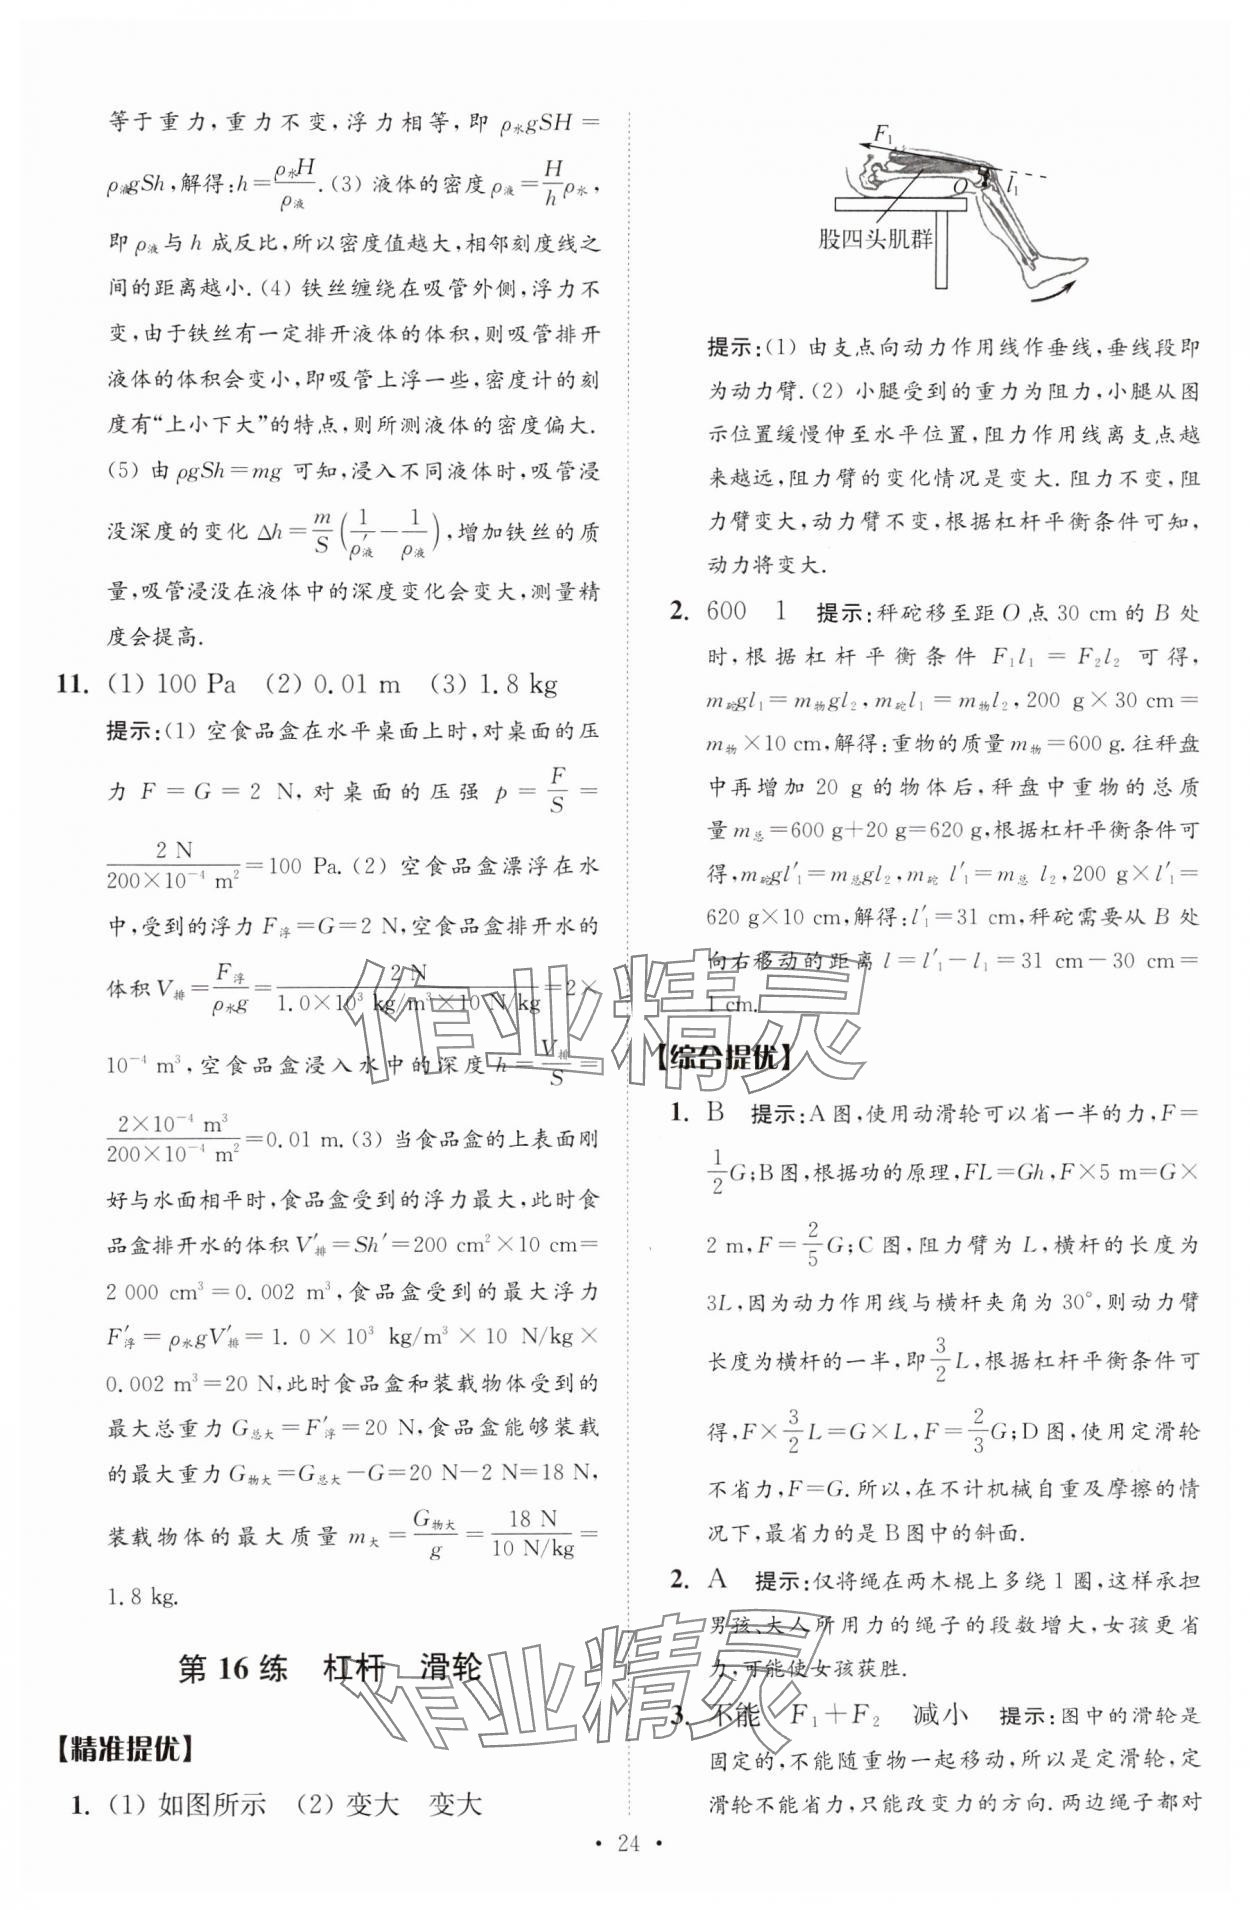 等于重力,重力不变,浮力相等,即 ρ水gSH=
ρ液gSh,解得:h=ρ水H/ρ液.(3) 液体的密度ρ液=H/h ρ水,
即ρ液与 h 成反比,所以密度值越大,相邻刻度线之
间的距离越小.(4) 铁丝缠绕在吸管外侧,浮力不
变,由于铁丝有一定排开液体的体积,则吸管排开
液体的体积会变小,即吸管上浮一些,密度计的刻
度有“上小下大”的特点,则所测液体的密度偏大.
(5) 由 ρgSh=mg 可知,浸入不同液体时,吸管浸
没深度的变化 Δh=m/S(1/ρ′液-1/ρ液),增加铁丝的质
量,吸管浸没在液体中的深度变化会变大,测量精
度会提高.
11. (1) 100 Pa (2) 0.01 m (3) 1.8 kg
提示:(1) 空食品盒在水平桌面上时,对桌面的压
力 F=G=2 N,对桌面的压强 p=F/S=
2 N/200×10⁻⁴ m²=100 Pa.(2) 空食品盒漂浮在水
中,受到的浮力 F浮=G=2 N,空食品盒排开水的
体积 V排=F浮/ρ水g=2 N/1.0×10³ kg/m³×10 N/kg=2×
10⁻⁴ m³,空食品盒浸入水中的深度 h=V排/S=
2×10⁻⁴ m³/200×10⁻⁴ m²=0.01 m.(3) 当食品盒的上表面刚
好与水面相平时,食品盒受到的浮力最大,此时食
品盒排开水的体积 V′排=Sh′=200 cm²×10 cm=
2 000 cm³=0.002 m³,食品盒受到的最大浮力
F′浮=ρ水gV′排=1.0×10³ kg/m³×10 N/kg×
0.002 m³=20 N,此时食品盒和装载物体受到的
最大总重力 G总大=F′浮=20 N,食品盒能够装载
的最大重力 G物大=G总大-G=20 N-2 N=18 N,
装载物体的最大质量 m大=G物大/g=18 N/10 N/kg=
1.8 kg.
第 16 练 杠杆 滑轮
【精准提优】
1. (1) 如图所示 (2) 变大 变大
F₁
O
l₁
股四头肌群
提示:(1) 由支点向动力作用线作垂线,垂线段即
为动力臂.(2) 小腿受到的重力为阻力,小腿从图
示位置缓慢伸至水平位置,阻力作用线离支点越
来越远,阻力臂的变化情况是变大.阻力不变,阻
力臂变大,动力臂不变,根据杠杆平衡条件可知,
动力将变大.
2. 600 1 提示:秤砣移至距 O 点 30 cm 的 B 处
时,根据杠杆平衡条件 F₁l₁=F₂l₂ 可得,
m砣gl₁=m物gl₂,m砣l₁=m物l₂,200 g×30 cm=
m物×10 cm,解得:重物的质量 m物=600 g.往秤盘
中再增加 20 g 的物体后,秤盘中重物的总质
量 m总=600 g+20 g=620 g,根据杠杆平衡条件可
得,m砣gl′₁=m总gl₂,m砣 l′₁=m总 l₂,200 g×l′₁=
620 g×10 cm,解得:l′₁=31 cm,秤砣需要从 B 处
向右移动的距离 l=l′₁-l₁=31 cm-30 cm=
1 cm.
【综合提优】
1. B 提示:A 图,使用动滑轮可以省一半的力,F=
1/2 G;B 图,根据功的原理,FL=Gh,F×5 m=G×
2 m,F=2/5 G;C 图,阻力臂为 L,横杆的长度为
3L,因为动力作用线与横杆夹角为 30°,则动力臂
长度为横杆的一半,即 3/2 L,根据杠杆平衡条件可
得,F×3/2 L=G×L,F=2/3 G;D 图,使用定滑轮
不省力,F=G.所以,在不计机械自重及摩擦的情
况下,最省力的是 B 图中的斜面.
2. A 提示:仅将绳在两木棍上多绕 1 圈,这样承担
男孩、大人所用力的绳子的段数增大,女孩更省
力,可能使女孩获胜.
3. 不能 F₁+F₂ 减小 提示:图中的滑轮是
固定的,不能随重物一起移动,所以是定滑轮,定
滑轮不能省力,只能改变力的方向.两边绳子都对
• 24 •
作业精灵
作业精灵